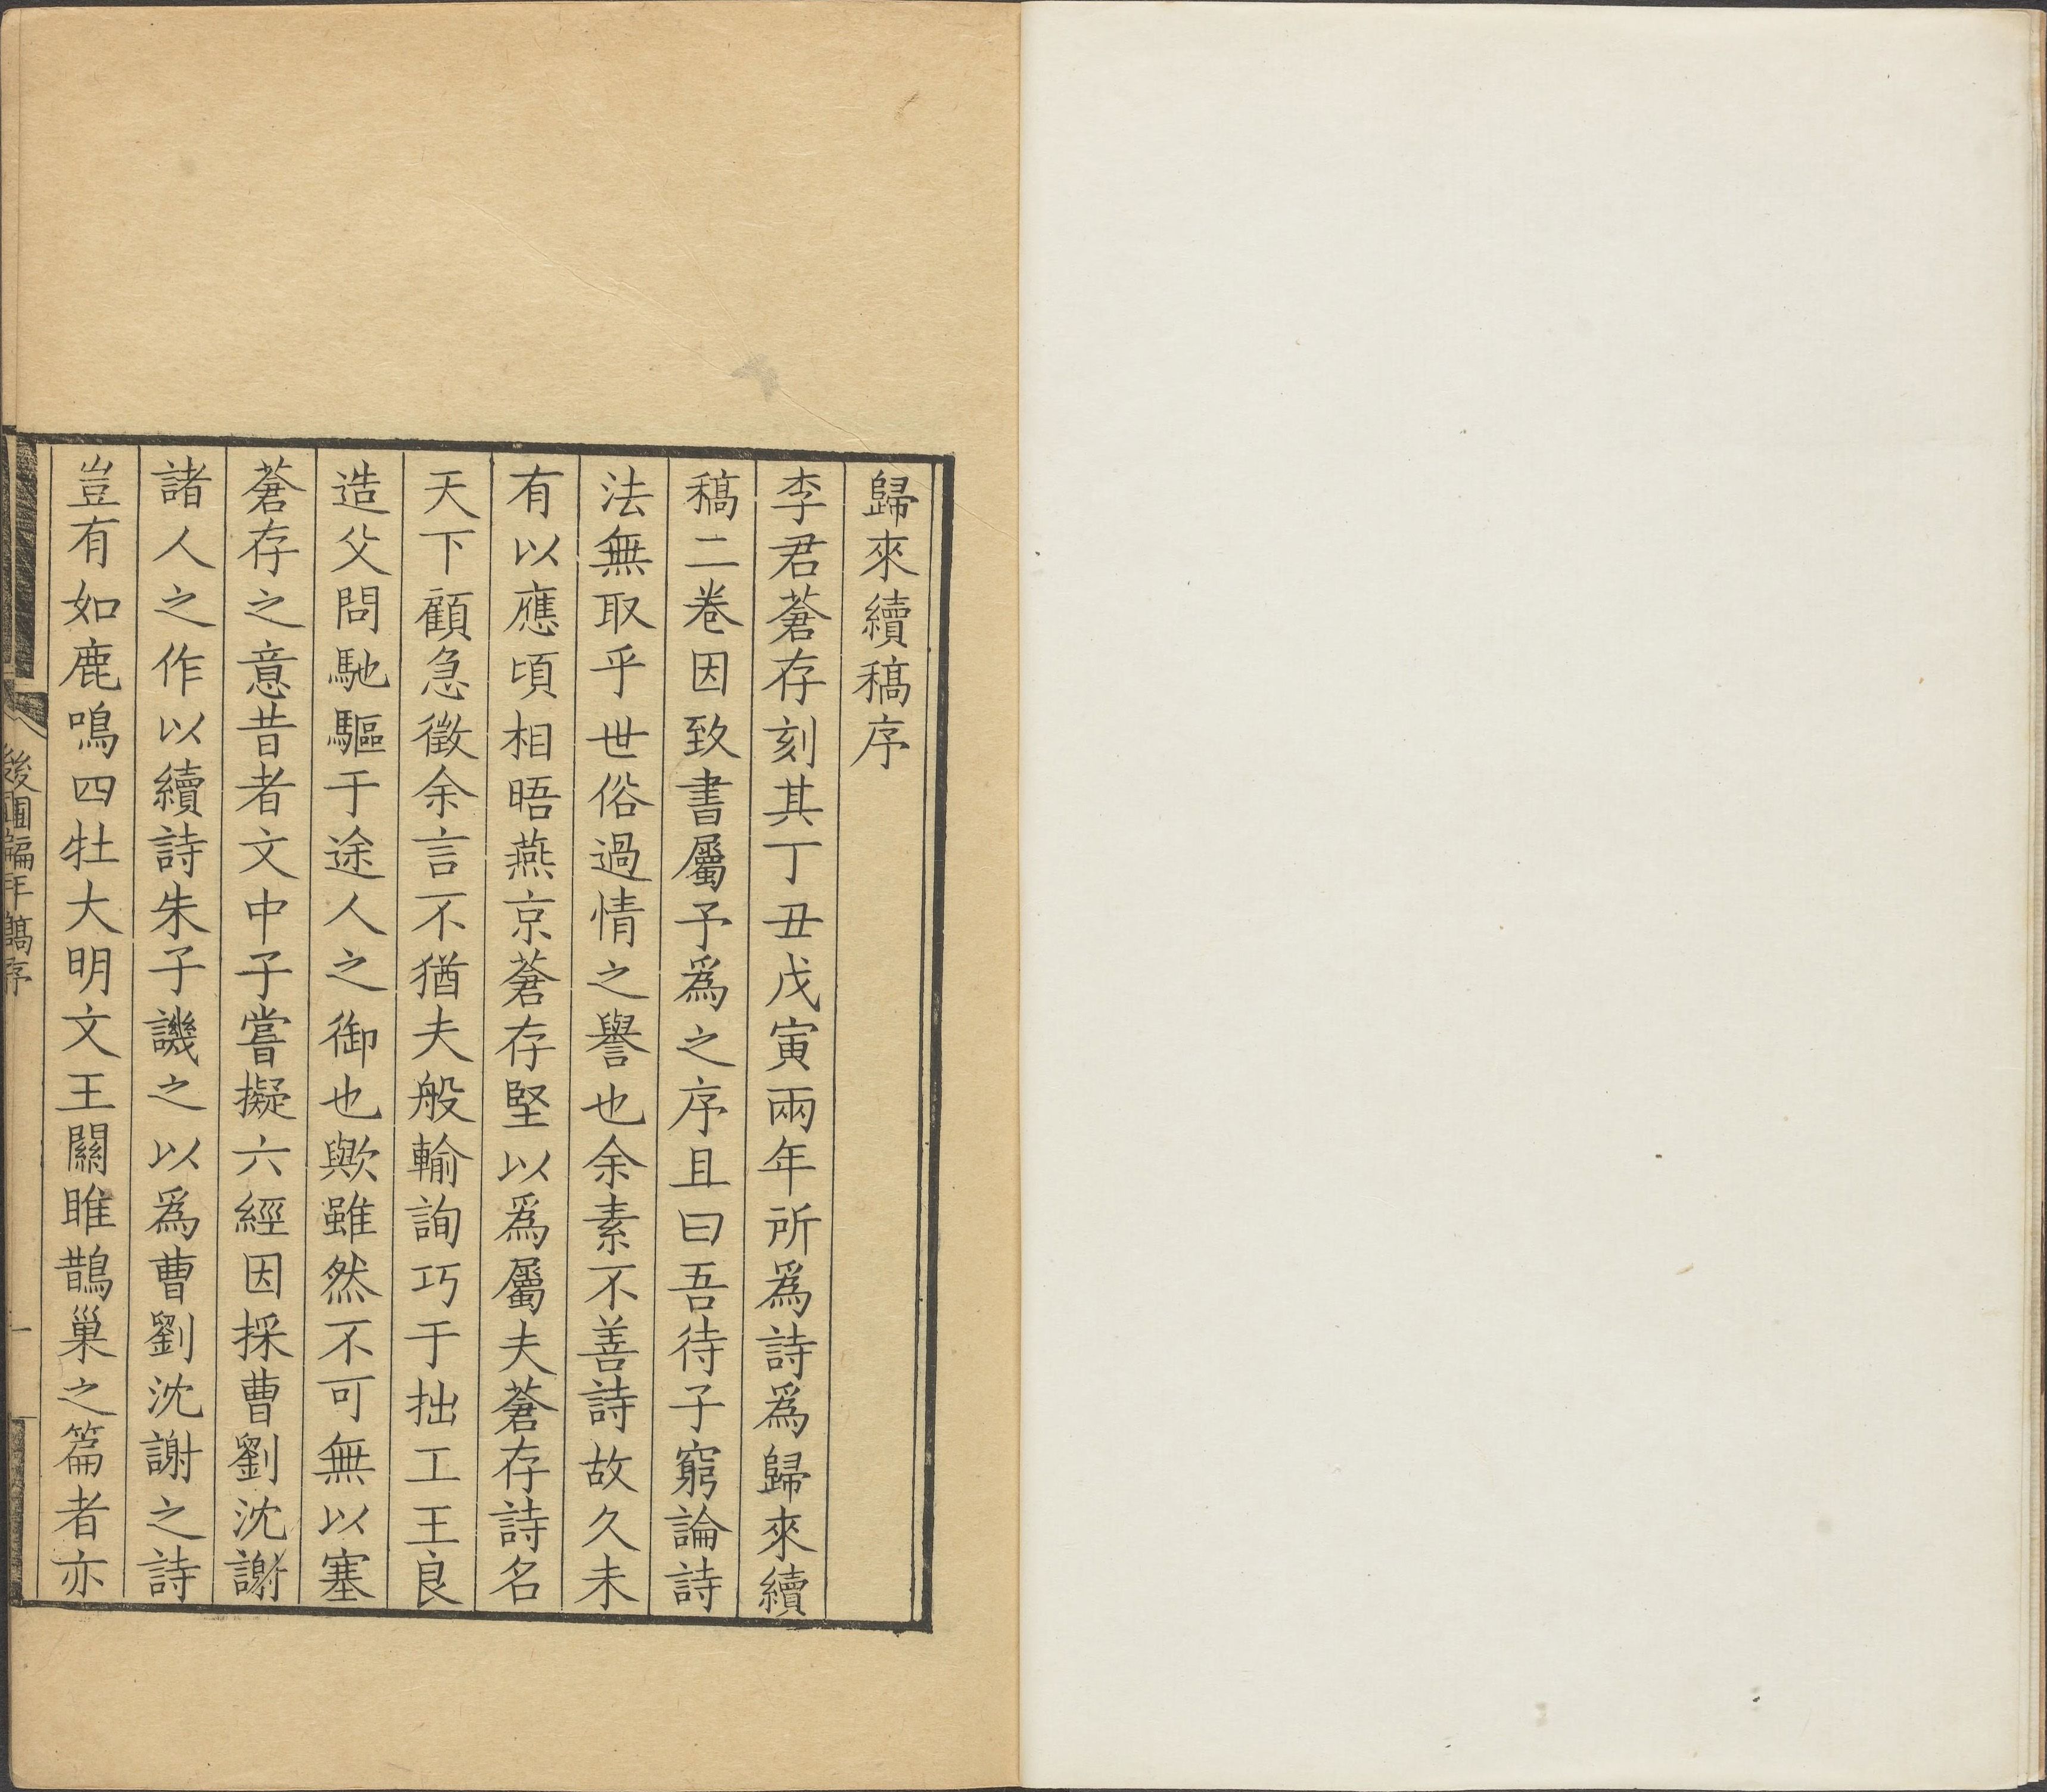 歸來續稿序
李君蒼存刻其丁丑戊寅兩年所爲詩爲歸來續
稿二卷因致書屬予爲之序且曰吾待子窮論詩
法無取乎世俗過情之譽也余素不善詩故久未
有以應頃相晤燕京蒼存堅以爲屬夫蒼存詩名
天下顧急徵余言不猶夫般輸詢巧于拙工王良
造父問馳驅于途人之御也歟雖然不可無以塞
蒼存之意昔者文中子嘗擬六經因採曹劉沈謝
諸人之作以續詩朱子譏之以爲曹劉沈謝之詩
豈有如鹿鳴四牡大明文王關雎鵲巢之篇者亦
後圃編年稿序
一